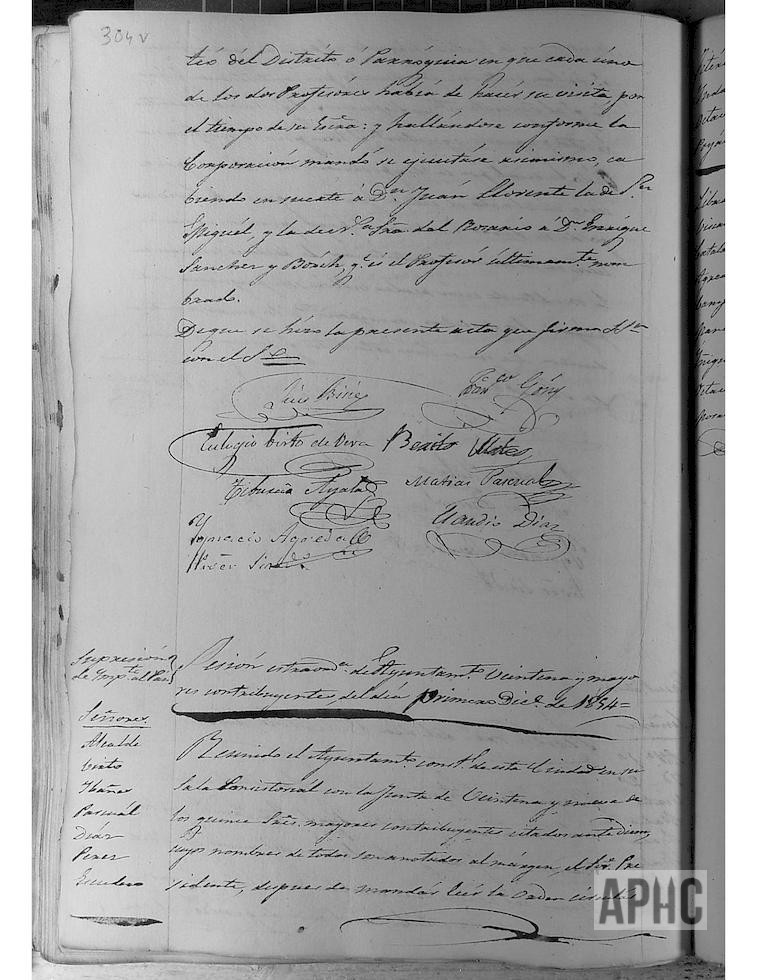 304 v
teó del Distrito ó Parróquia en que cada úno
de los dos Profesóres habia de hacér su visita por
el tiempo de su Escra: y hallándose conforme la
Corporación mandó se ejecutáse asimismo, ca
biendo en suerte á Dn Juán Llorente la de Sn
Miguél, y la de Na Sra del Rosario á Dn Enrique
Sanchez y Bosch, qe es el Profesór últimamte nom
brado.
De que se hizo la presente acta que firma S.
con el S
Luis
Franco Gómz
Eulogio Virto de Vera
Benito
Tiburcio Ayala
Matias Pascual
Ygnacio Agreda
Claudio Diaz
Supresión
de Impto al
Sesión estraordª de Ayuntamto Veintena y mayo
res contribuyentes, del dia primero Dice de 1854=
Señores
Alcalde
Virto
Ibañez
Pascuál
Diáz
Perez
Escudero
Reunido el Ayuntamto constl de esta Ciudad en su
Sala Consistoriál con la Junta de Veintena y nueva de
los quince Sres mayores contribuyentes citados ante diem,
cuyos nombres de todos son anotados al margen, el Sr Pre
sidente, despues de mandár leér la orden circulár
APHC